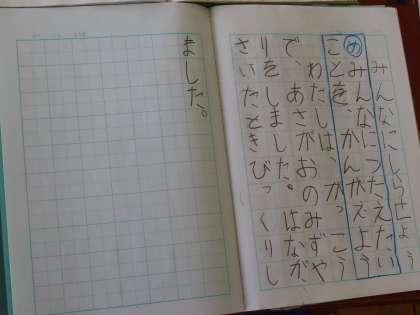 みんなにしらせよう
めみんなにつたえたい
ことを、かんがえよう
わたしは、がっこう
で、あさがおのみずや
りをしました。はなが、
さいたときびっくりし
ました。